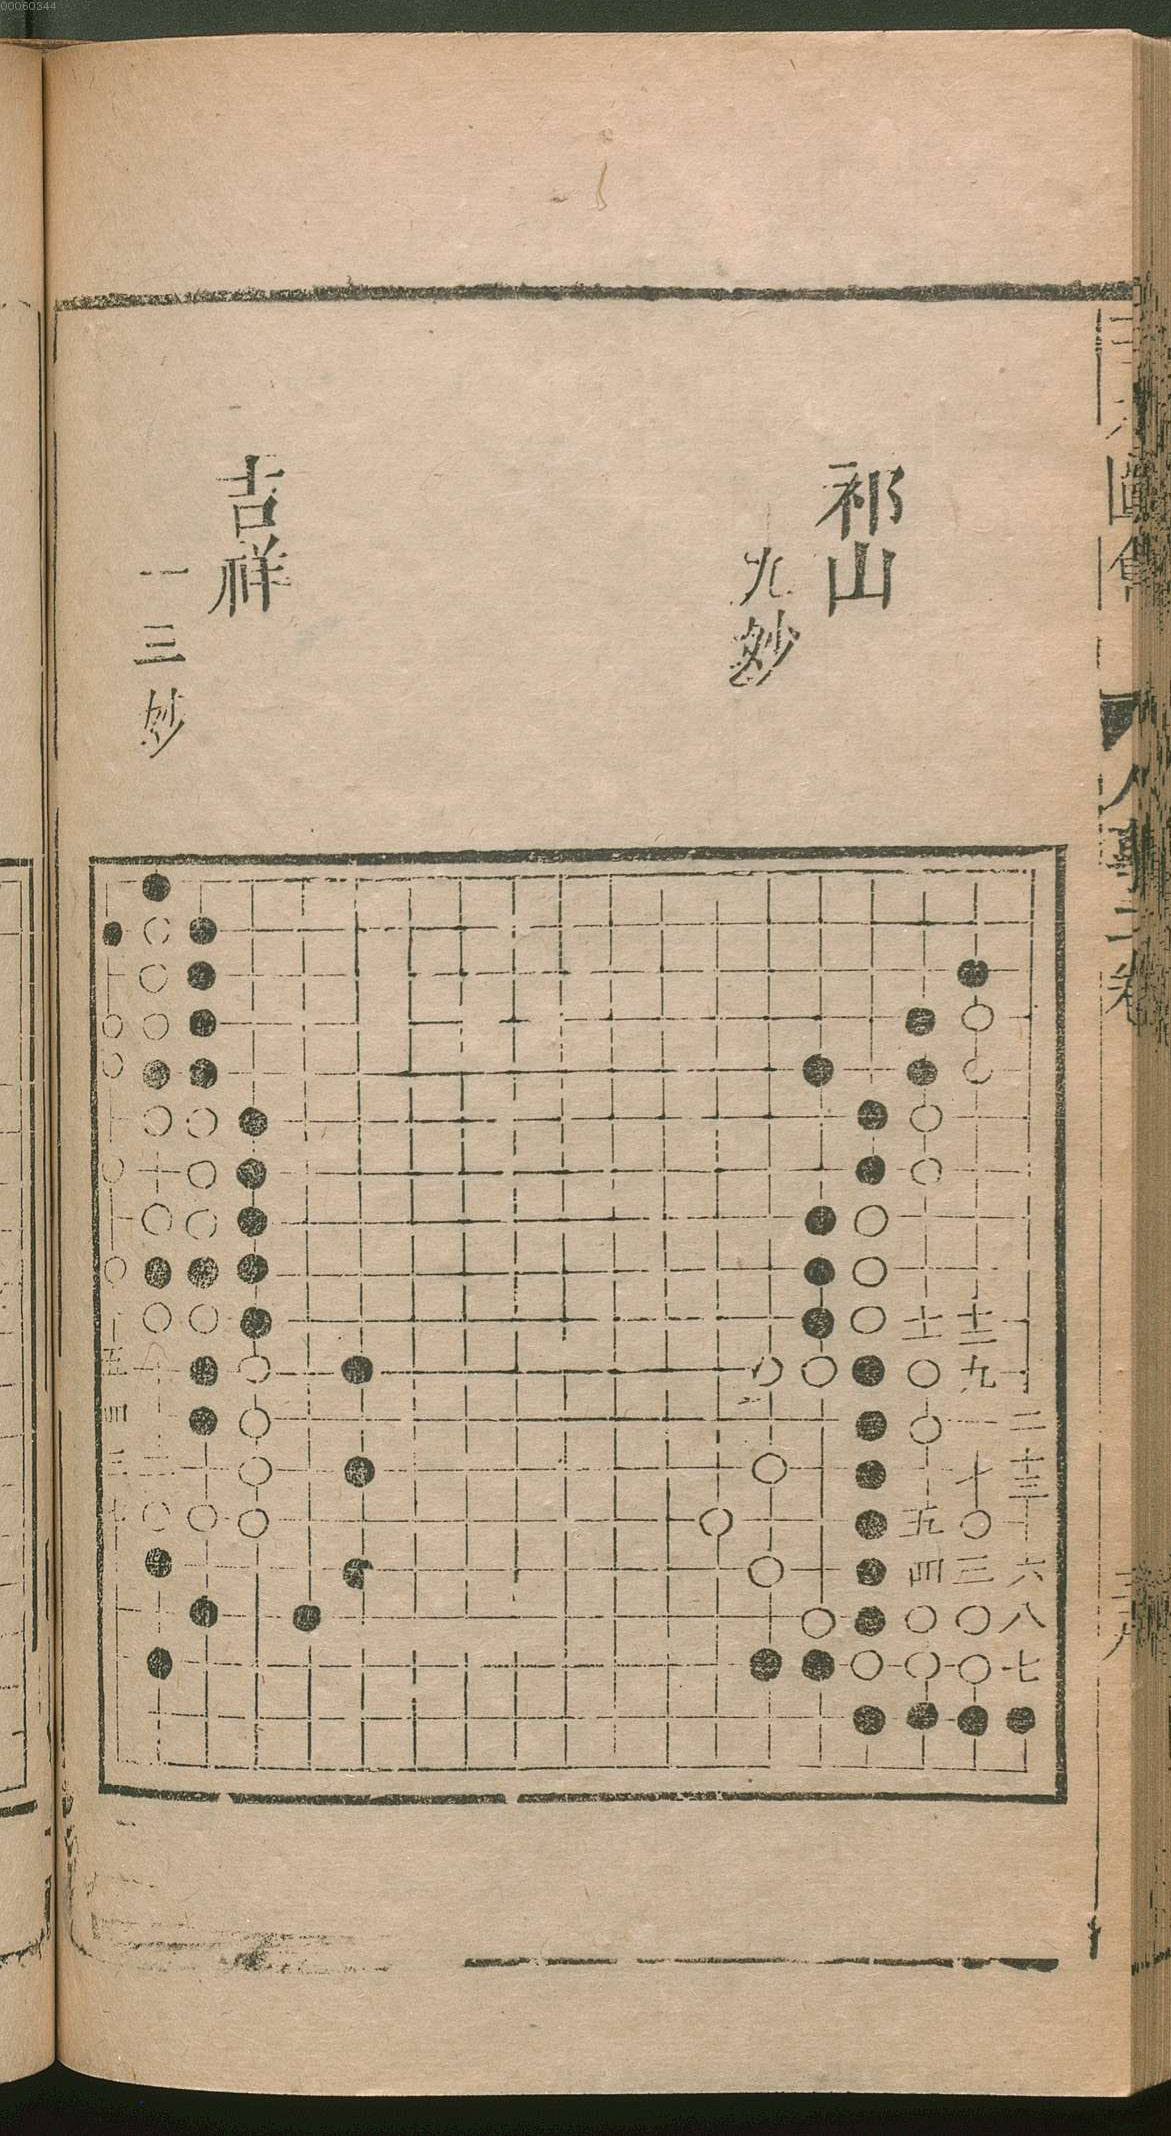 00060344
圖會
人事二卷
祁山
九妙
吉祥
一三妙
十一 十二
九
一 二
十 十三
五
四 三 六
八
七
五
四
三 二
七